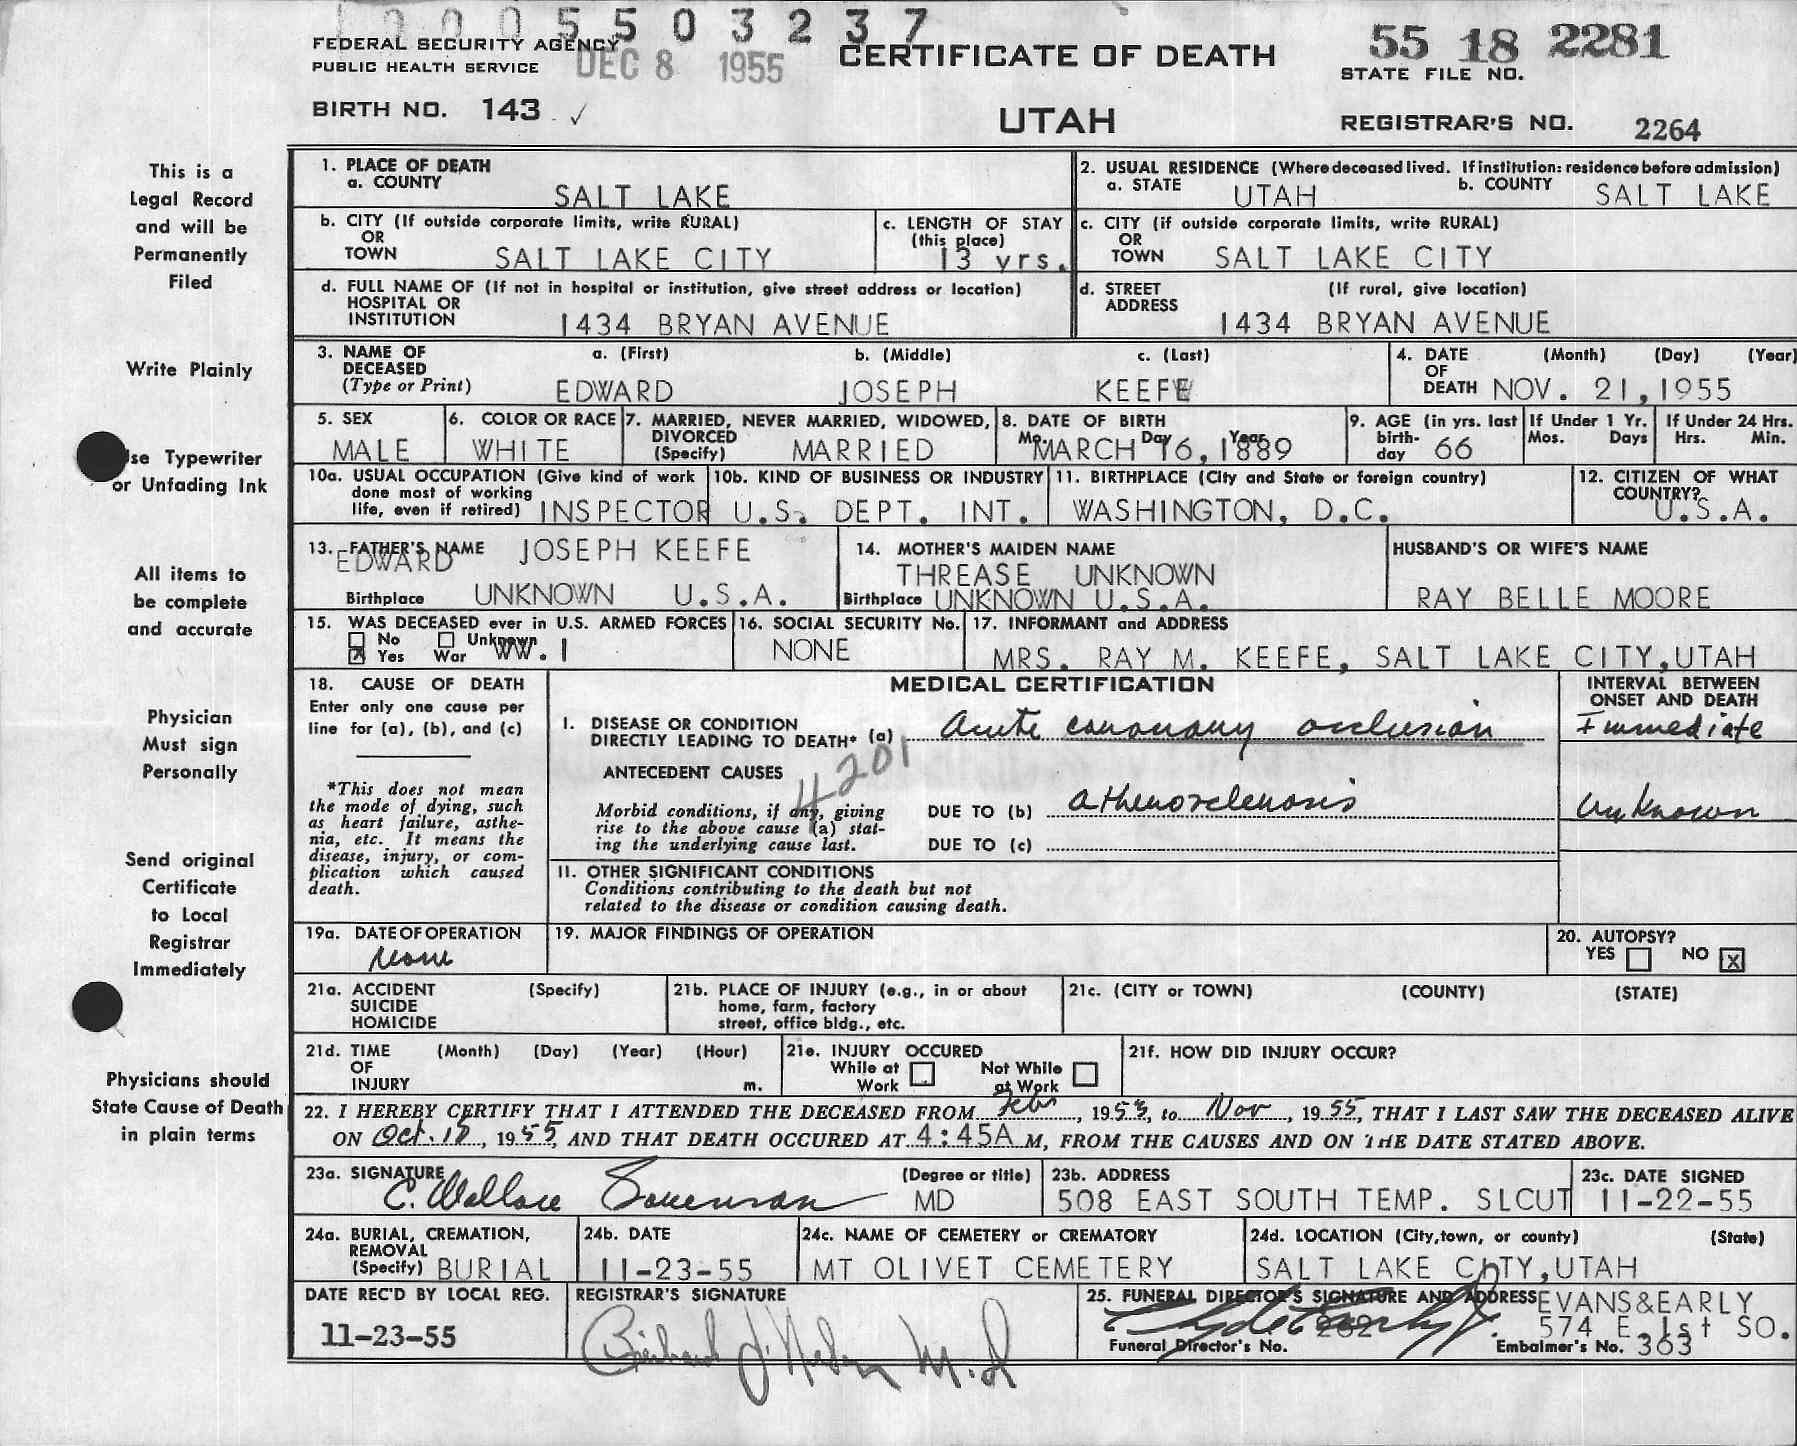 0005503237
FEDERAL SECURITY AGENCY
PUBLIC HEALTH SERVICE
DEC 8 1955
CERTIFICATE OF DEATH
55 18 2281
STATE FILE NO.
BIRTH NO. 143 ✓
UTAH
REGISTRAR'S NO. 2264
This is a
Legal Record
and will be
Permanently
Filed
Write Plainly
se Typewriter
or Unfading Ink
All items to
be complete
and accurate
Physician
Must sign
Personally
Send original
Certificate
to Local
Registrar
Immediately
Physicians should
State Cause of Death
in plain terms
1. PLACE OF DEATH
a. COUNTY SALT LAKE
2. USUAL RESIDENCE (Where deceased lived. If institution: residence before admission)
a. STATE UTAH b. COUNTY SALT LAKE
b. CITY (If outside corporate limits, write RURAL)
OR
TOWN SALT LAKE CITY
c. LENGTH OF STAY
(this place)
13 yrs.
c. CITY (if outside corporate limits, write RURAL)
OR
TOWN SALT LAKE CITY
d. FULL NAME OF (If not in hospital or institution, give street address or location)
HOSPITAL OR
INSTITUTION 1434 BRYAN AVENUE
d. STREET (If rural, give location)
ADDRESS
1434 BRYAN AVENUE
3. NAME OF
DECEASED
(Type or Print)
a. (First) b. (Middle) c. (Last)
EDWARD JOSEPH KEEFE
4. DATE (Month) (Day) (Year)
OF
DEATH NOV. 21, 1955
5. SEX
MALE
6. COLOR OR RACE
WHITE
7. MARRIED, NEVER MARRIED, WIDOWED,
DIVORCED
(Specify) MARRIED
8. DATE OF BIRTH
Mo. Day Year
MARCH 16, 1889
9. AGE (in yrs. last
birth-
day 66
If Under 1 Yr.
Mos. Days
If Under 24 Hrs.
Hrs. Min.
10a. USUAL OCCUPATION (Give kind of work
done most of working
life, even if retired) INSPECTOR
10b. KIND OF BUSINESS OR INDUSTRY
U.S. DEPT. INT.
11. BIRTHPLACE (City and State or foreign country)
WASHINGTON, D.C.
12. CITIZEN OF WHAT
COUNTRY?
U.S.A.
13. FATHER'S NAME
EDWARD JOSEPH KEEFE
Birthplace UNKNOWN U.S.A.
14. MOTHER'S MAIDEN NAME
THREASE UNKNOWN
Birthplace UNKNOWN U.S.A.
HUSBAND'S OR WIFE'S NAME
RAY BELLE MOORE
15. WAS DECEASED ever in U.S. ARMED FORCES
No Unknown
X Yes War WW. I
16. SOCIAL SECURITY No.
NONE
17. INFORMANT and ADDRESS
MRS. RAY M. KEEFE, SALT LAKE CITY, UTAH
18. CAUSE OF DEATH
Enter only one cause per
line for (a), (b), and (c)
*This does not mean
the mode of dying, such
as heart failure, asthe-
nia, etc. It means the
disease, injury, or com-
plication which caused
death.
MEDICAL CERTIFICATION
INTERVAL BETWEEN
ONSET AND DEATH
I. DISEASE OR CONDITION
DIRECTLY LEADING TO DEATH* (a) Acute coronary occlusion
Immediate
ANTECEDENT CAUSES
4201
Morbid conditions, if any, giving
rise to the above cause (a) stat-
ing the underlying cause last.
DUE TO (b) atherosclerosis
Unknown
DUE TO (c)
11. OTHER SIGNIFICANT CONDITIONS
Conditions contributing to the death but not
related to the disease or condition causing death.
19a. DATE OF OPERATION
None
19. MAJOR FINDINGS OF OPERATION
20. AUTOPSY?
YES NO X
21a. ACCIDENT (Specify)
SUICIDE
HOMICIDE
21b. PLACE OF INJURY (e.g., in or about
home, farm, factory
street, office bldg., etc.
21c. (CITY or TOWN) (COUNTY) (STATE)
21d. TIME (Month) (Day) (Year) (Hour)
OF
INJURY m.
21e. INJURY OCCURED
While at Not While
Work at Work
21f. HOW DID INJURY OCCUR?
22. I HEREBY CERTIFY THAT I ATTENDED THE DECEASED FROM Feb, 1953, to Nov, 1955, THAT I LAST SAW THE DECEASED ALIVE
ON Oct. 18, 1955, AND THAT DEATH OCCURED AT 4:45A M, FROM THE CAUSES AND ON THE DATE STATED ABOVE.
23a. SIGNATURE (Degree or title)
C. Wallace Sorenson MD
23b. ADDRESS
508 EAST SOUTH TEMP. SLCUT
23c. DATE SIGNED
11-22-55
24a. BURIAL, CREMATION,
REMOVAL
(Specify) BURIAL
24b. DATE
11-23-55
24c. NAME OF CEMETERY or CREMATORY
MT OLIVET CEMETERY
24d. LOCATION (City, town, or county) (State)
SALT LAKE CITY, UTAH
DATE REC'D BY LOCAL REG.
11-23-55
REGISTRAR'S SIGNATURE
M.D.
25. FUNERAL DIRECTOR'S SIGNATURE AND ADDRESS
EVANS&EARLY
574 E. 1st SO.
Funeral Director's No. 262
Embalmer's No. 363